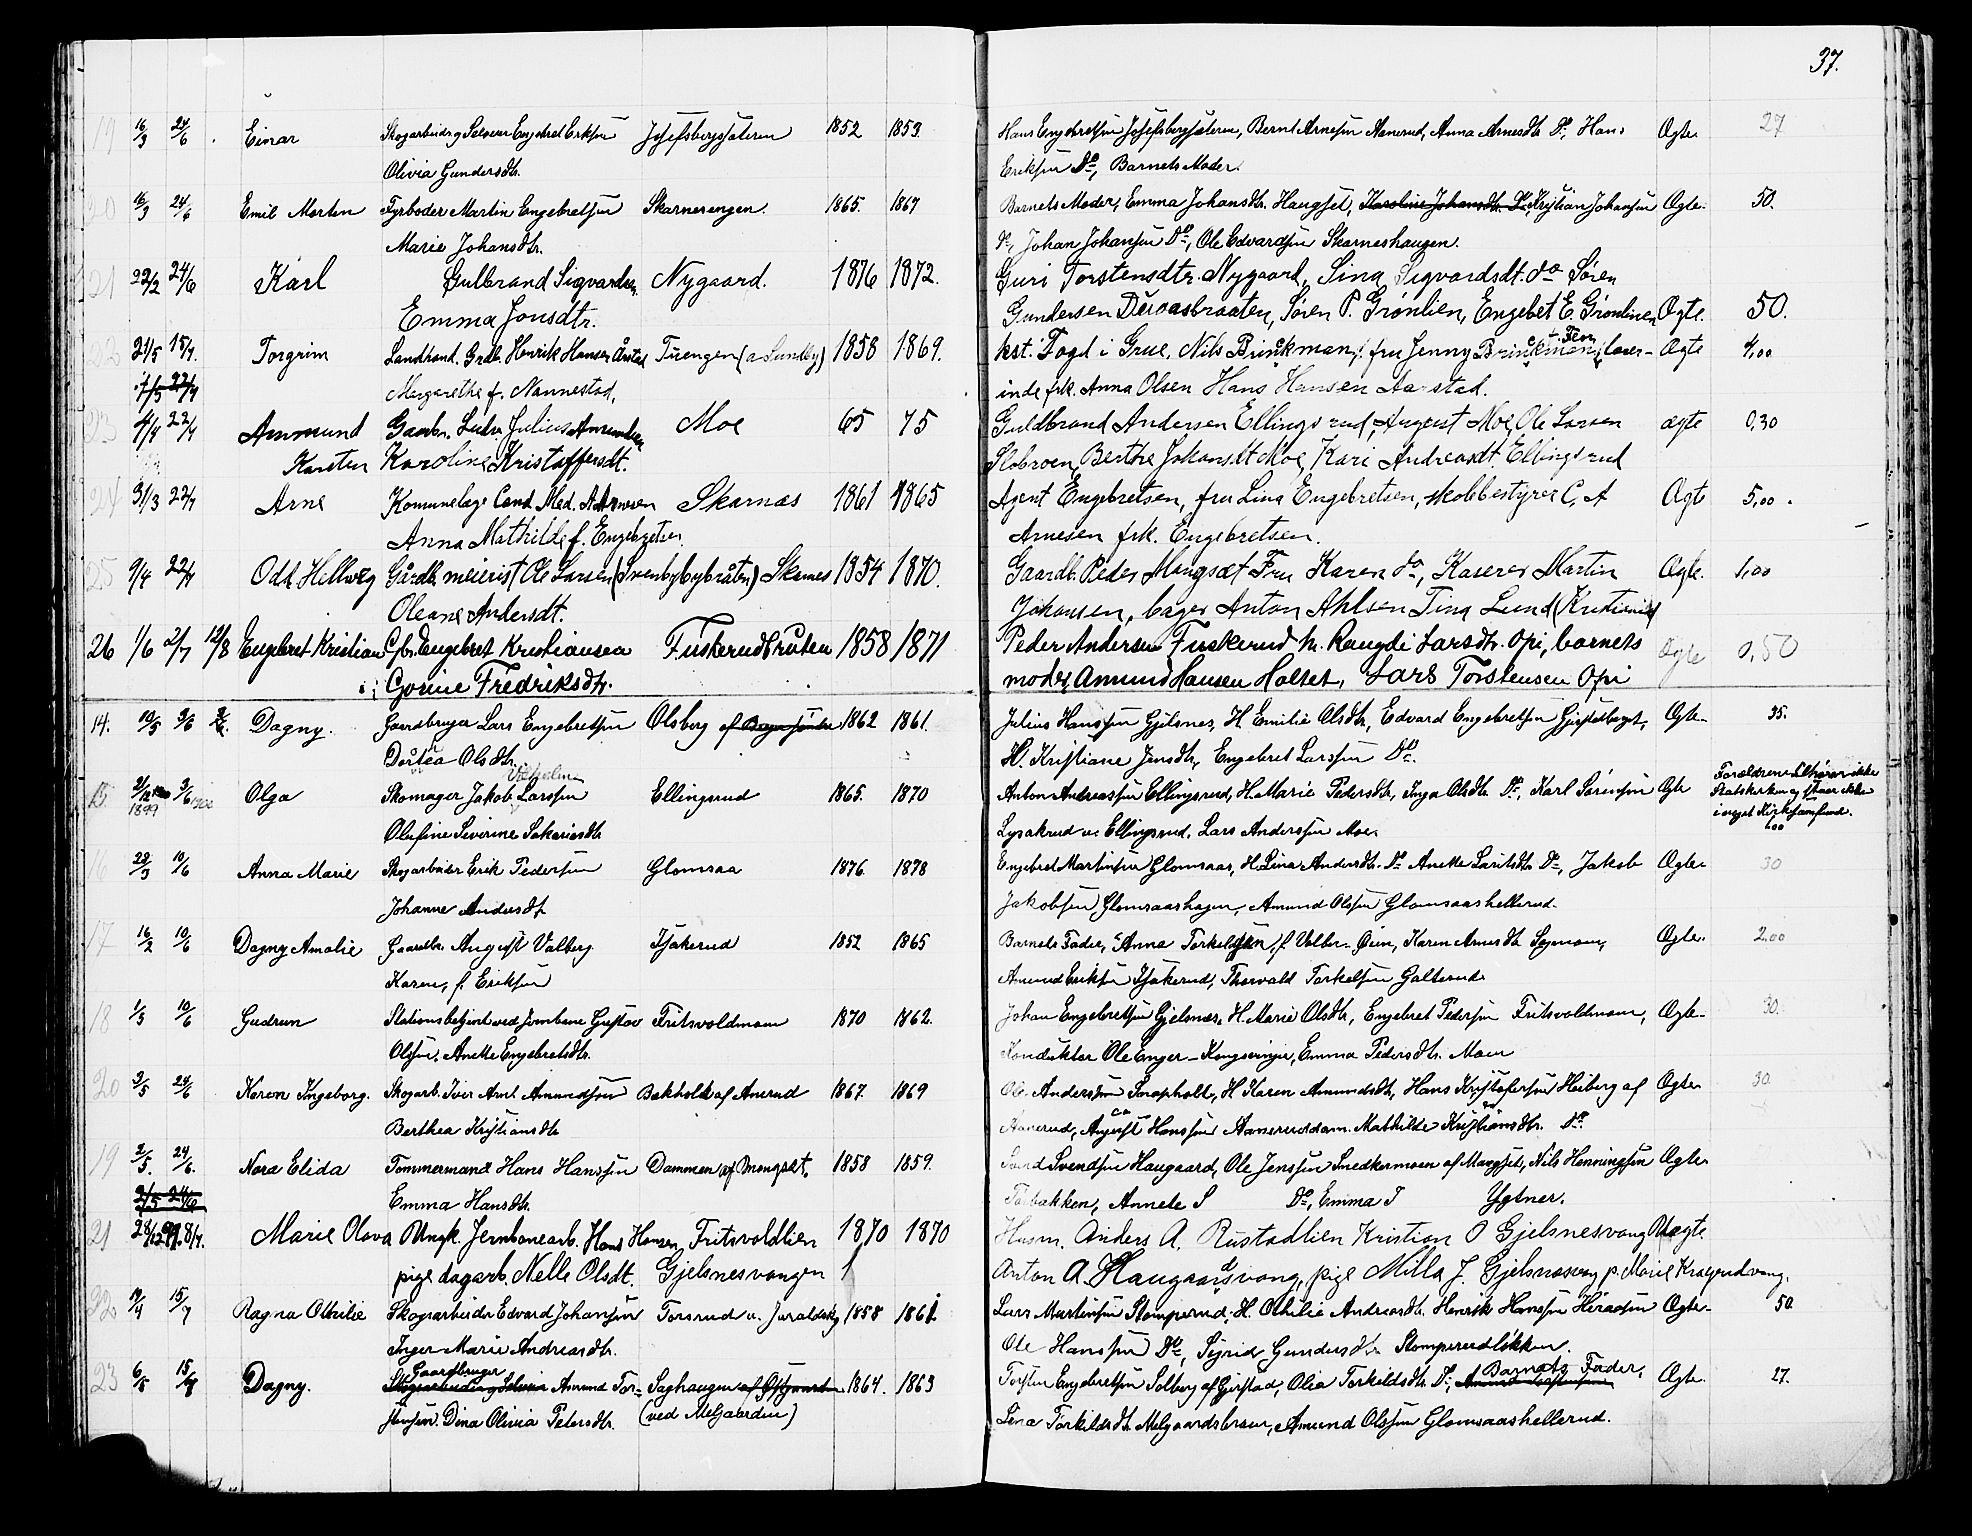 37.
19 16/3 24/6 Einar Skogarbeider og Selveier Engebret Eriksen Josefsbergsæteren 1852 1853 Hans Engebretsen Josefsbergsæteren, Bernt Arnesen Aanerud, Anna Arnesdtr. Do, Hans Ægte 27
Olivia Gundersdtr. Eriksen Do, Barnets Moder.
20 16/3 24/6 Emil Morten Fyrbøder Martin Engebretsen Skarnesengen. 1865. 1867 Barnets Moder, Emma Johansdtr. Haugset, Karoline Johansdtr. Do, Kristian Johansen Ægte. 50.
Marie Johansdtr. Do, Johan Johansen Do, Ole Edvardsen Skarneshaugen.
21 22/2 24/6 Karl Gulbrand Sigvardsen Nygaard. 1876 1872. Guri Torstensdtr. Nygaard, Sina Sigvardsdt. do Søren
Emma Jonsdtr. Gundersen Duraasbraaten, Søren P. Grønlien, Engebet E. Grønlien Ægte. 50.
22 21/5 15/7. Torgrim Landhand. Grdb. Henrik Hansen Årstad Tuengen (a Sundby) 1858 1869. kst. Fogd i Grue, Nils Brinckman, fru Jenny Brinckman, lærer- Ægte 4,00
Margarethe f. Nannestad, inde frk. Anna Olsen Hans Hansen Aarstad.
23 4/4 22/7 Ammund Gaardbr. Ludv. Julius Amundsen Moe 65 75 Guldbrand Andersen Ellingsrud, August Moe, Ole Larsen ægte 0,30
Karsten Karoline Kristoffersdt. Slobroen, Berthe Johansdt Moe, Kari Andreasdt. Ellingsrud
24 31/3 22/7 Arne Komunelæge Cand. Med. A. Arnesen Skarnæs 1861 1865 Agent Engebretsen, fru Lina Engebretsen, skolebestyrer C. A Ægte 5,00.
Anna Mathilde f. Engebretsen. Arnesen frk. Engebretsen.
25 9/4 22/7 Odd Hellweg Gårdb. meierist Ole Larsen (Svenbybybråten) Skarnes 1854 1870. Gaardb. Peder Mangset Fru Karen do, Kaserer Martin Ægte. 1,00
Oleane Andersdt. Johansen, bager Anton Ahlsen Tina Lund (Kristiania)
26 1/6 2/7 12/8 Engebret Kristian Gbr. Engebret Kristiansen Fuskerudbruten 1858 1871 Peder Andersen Fuskerud h. Rangdi Larsdtr. Opi, barnets Ægte 0,50
Gorine Fredriksdtr. moder, Amund Hansen Holset, Lars Torstensen Opi
14. 10/5 3/6 Dagny. Gaardbruger Lars Engebretsen Olsberg 1862 1861. Julius Hansen Gjelsnes, H. Emilie Olsdtr, Edvard Engebretsen Ægte. 35.
Dortea Olsdtr. H. Kristiane Jensdtr, Engebret Larssen Do.
15. 21/12 1899 3/6 1900 Olga Skomager Jakob Vilhelm Larssen Ellingsrud 1865. 1870 Anton Andreassen Ellingsrud, H. Marie Pedersdtr, Inga Olsdtr. Do, Karl Sørensen Ægte Forældrene tilhører ikke
Statskirken og staar ikke
i noget Kirkesamfund.
1,00
Olufine Severine Sakariasdtr. Lysakrud u. Ellingsrud. Lars Anderssen Moe.
16 28/3 10/6 Anna Marie Skogarbeider Erik Pedersen Glomsaa 1876. 1878 Engebret Martinsen Glomsaas, H. Lina Andersdtr. Do Anette Lauritsdtr. Do, Jakob Ægte 30
Johanne Andersdtr. Jakobsen Glomsaashagen, Amund Olsen Glomsaashellerud.
17 16/2 10/6 Dagny Amalie Gaardbr. August Valberg Isakerud 1852 1865 Barnets Fader, Anna Torkildsen, f. Valberg, Karen Arnesdtr Ægte 2,00
Karen, f. Eriksen Amund Eriksen Isakerud, Thorvald Torkelsen Galterud
18 1/5 10/6 Gudrun Stationsbetjent ved Jernbanen Gustav Fritsvoldmoen 1870 1862. Johan Engebretsen Gjelsnes, H. Marie Olsdtr, Engebret Pedersen Fritsvoldmoen, Ægte 30.
Olssen, Anette Engebretsdtr. Konduktør Ole Enger-Kongsvinger, Emma Pedersdtr. Moen
20 3/5 24/6 Karen Ingeborg. Skogarb. Iver Arnt Amundsen Bakholt af Anerud 1867. 1869 Ole Anderssen Snapholt, H Karen Amundsdtr, Hans Kristoffersen Heiberg af Ægte 30
Berthea Kristiansdtr Aanerud, August Hanssen Aaneruddam. Mathilde Kristiansdtr. Do
19 2/5. 24/6. Nora Elida Tømmermand Hans Hanssen Dammen af Mangset. 1858 1859. Svend Svendsen Haugaard, Ole Jenssen Smedkermoen af Mangset, Nils Henningsen Ægte
2/5 24/6 Emma Hansdtr. Torbakken, Annete S Do, Emma I Ygtner.
21 28/12 99. 8/7. Marie Olava Ungk. Jernbanearb. Hans Hansen, Fritsvoldlien 1870 1870 Husm. Anders A. Rustadlien Kristian O Gjelsnesvang Uægte
pige dagarb. Nelle Olsdt. Gjelsnesvangen Anton A. Haugaardsvang, pige Milla J. Gjelsnesvang p. Marie
22 19/4 15/7 Ragna Othilie Skogarbeider Edvard Johansen Torsrud u. Juraldsk. 1858 1861. Lars Martinsen Stomperud, H. Othilie Andreasdtr. Henrik Hansen Ægte 50.
Inger Marie Andreasdtr. Ole Hanssen Do, Sigrid Gundersdtr. Stomperudløkken.
23 6/5 15/7 Dagny. Gaardbruger Amund Tor- Saghaugen af Østgaard 1864. 1863 Torsten Engebretsen Solberg af Gjerstad, Olia Torkildsdtr. Do, Barnets Fader, Ægte. 27.
stensen. Dina Olivia Petersdtr. (ved Melgaarden) Lina Torkildsdtr. Melgaardsbraaten, Amund Olssen Glomsaashellerud.